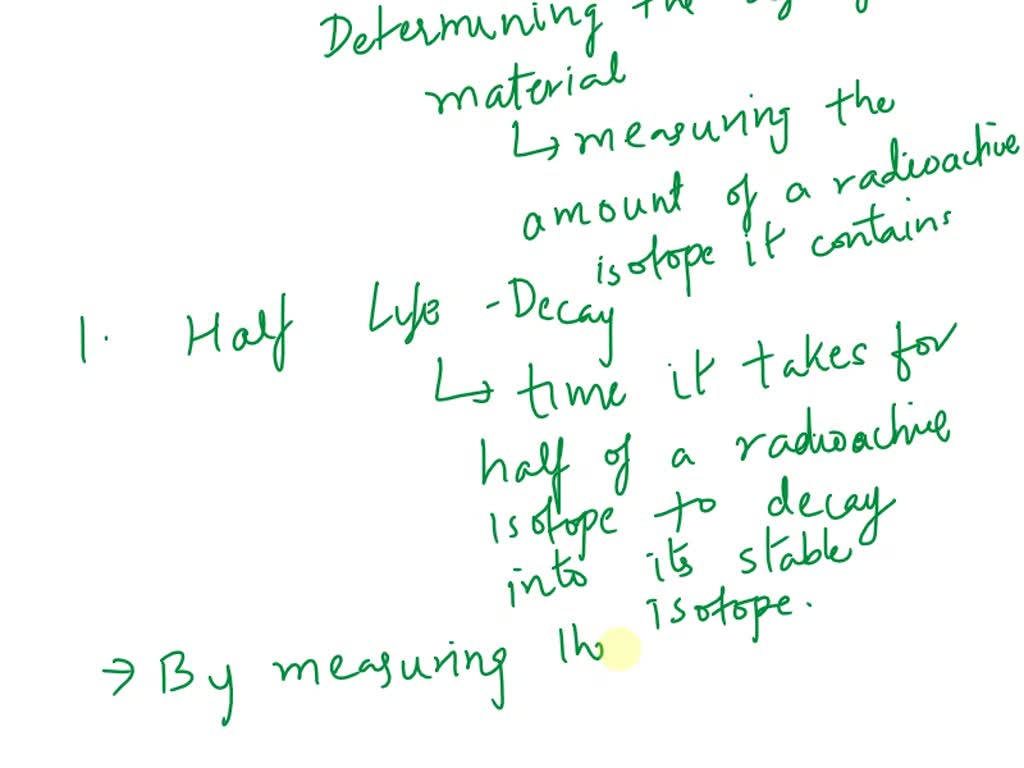 Determining the
material
↳ measuring the
amount of a radioactive
isotope it contains
1. Half Life - Decay
↳ time it takes for
half of a radioactive
isotope to decay
into its stable
isotope.
→ By measuring